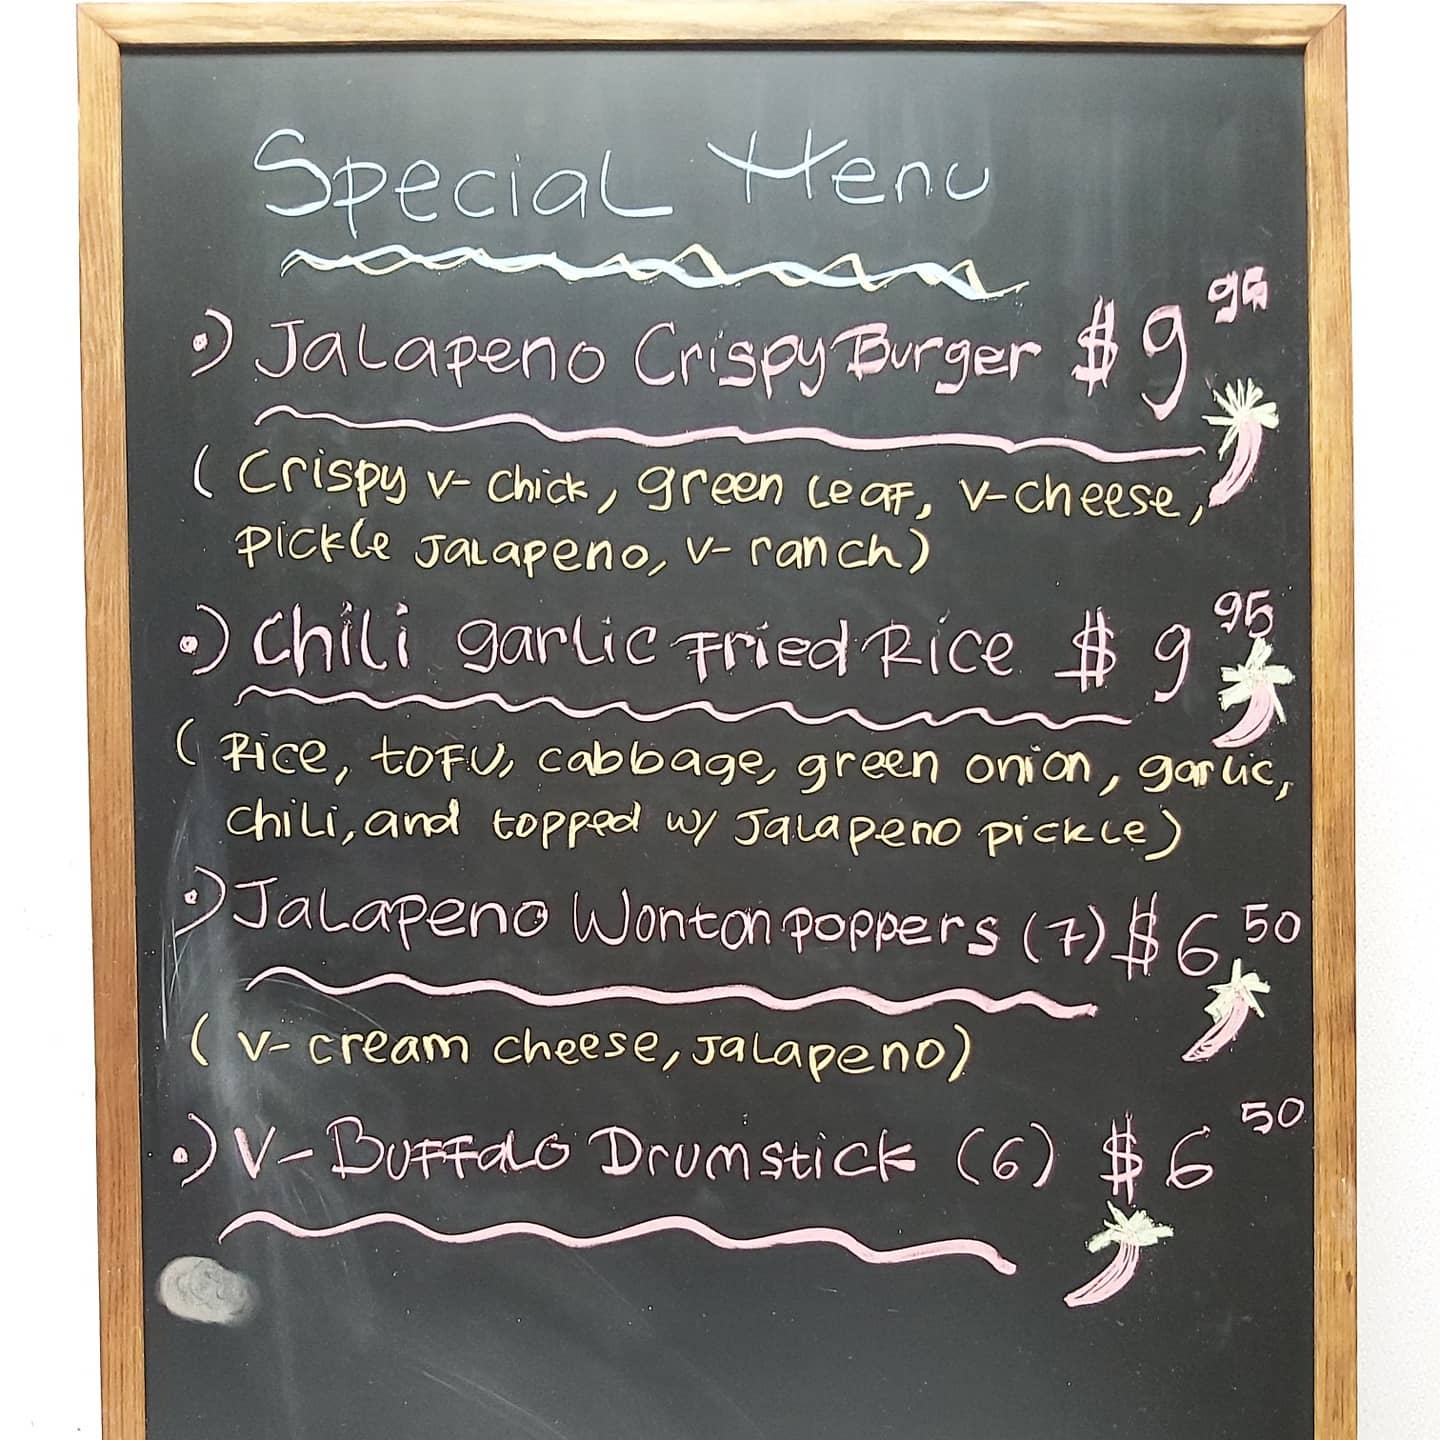 Special Menu
•) Jalapeno Crispy Burger $9 95
( Crispy v- chick, green leaf, v-cheese,
pickle Jalapeno, v- ranch)
•) Chili garlic Fried Rice $ 9 95
( Rice, toFU, cabbage, green onion, garlic,
chili, and topped w/ Jalapeno pickle)
•) Jalapeno Wonton poppers (7) $6 50
( v- cream cheese, Jalapeno)
•) V- Buffalo Drumstick (6) $6 50